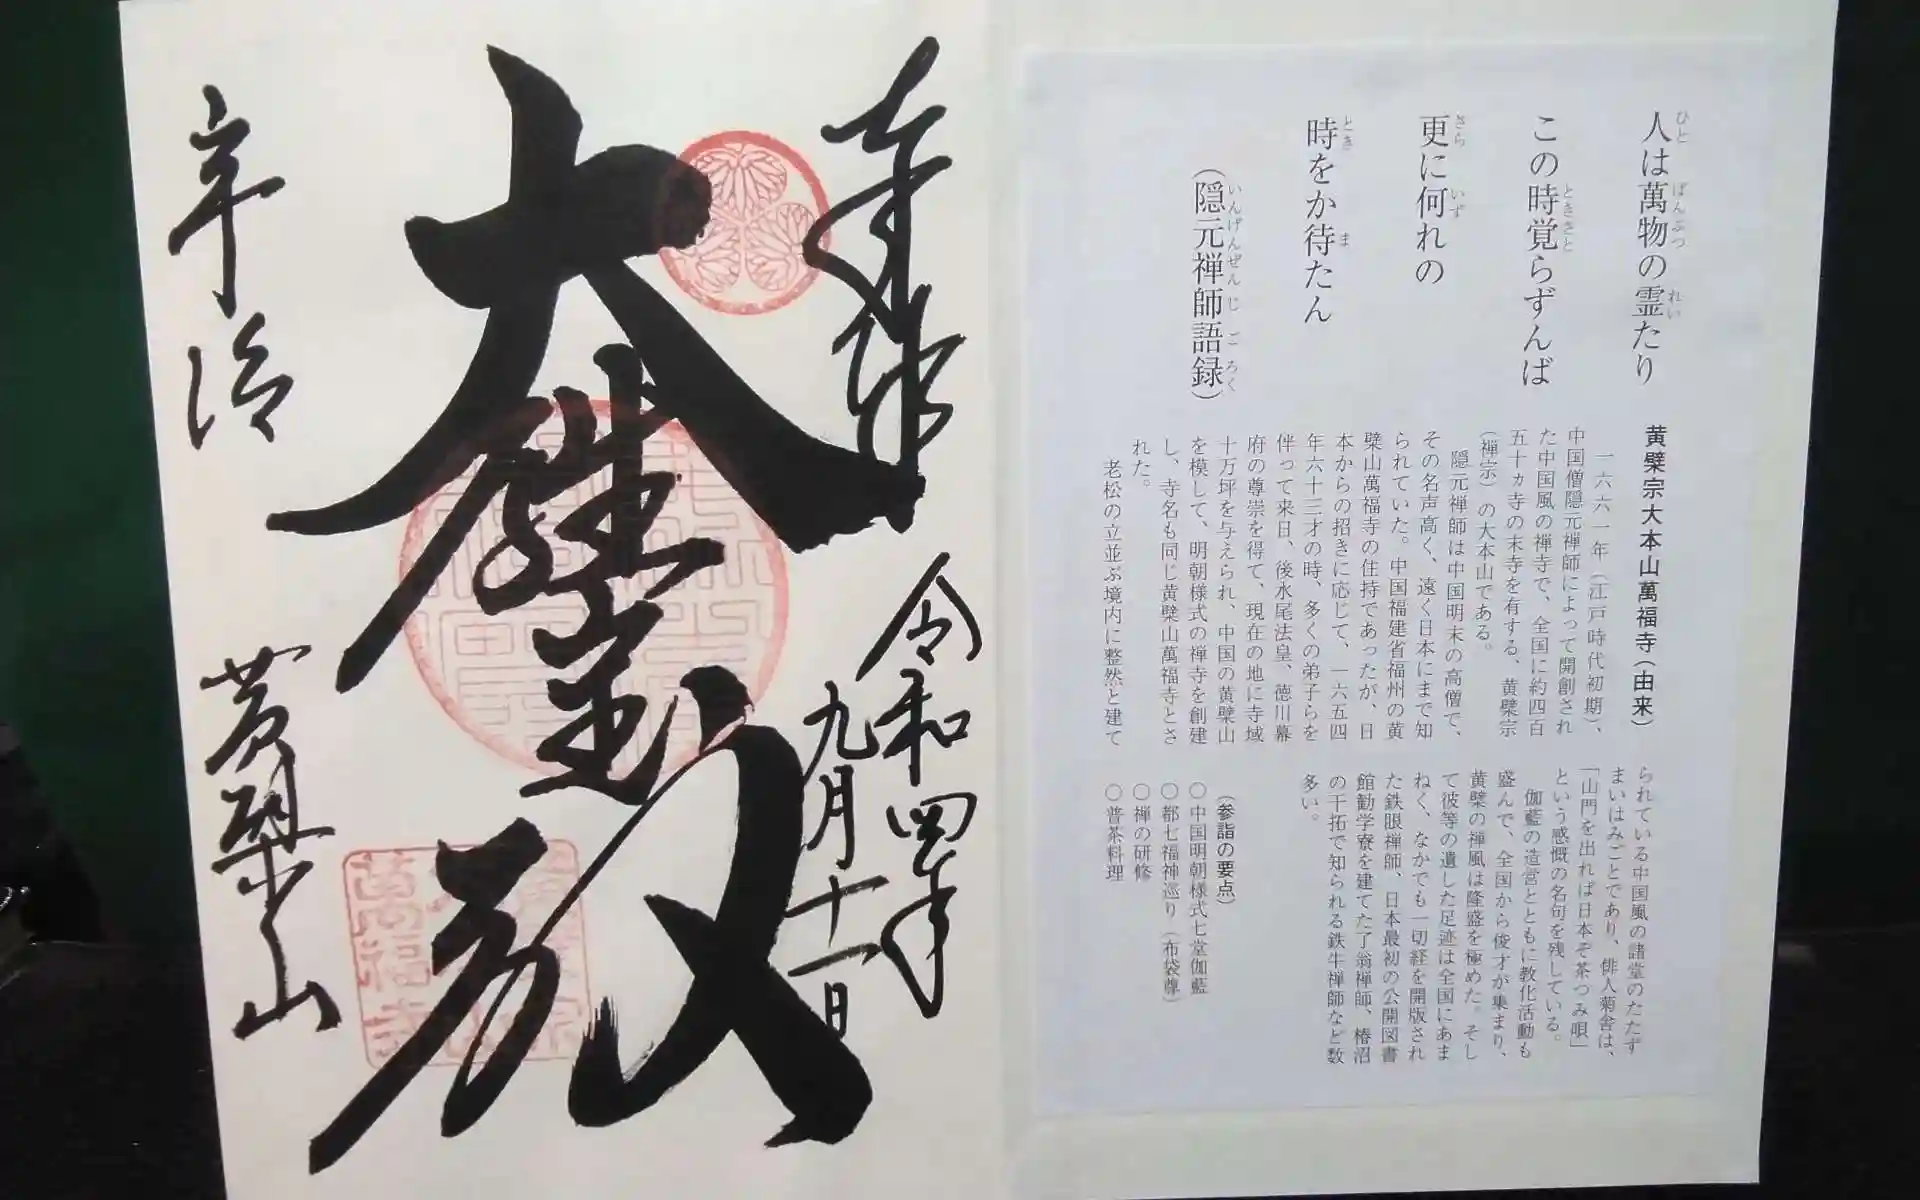 人は萬物の霊たり
この時覚らずんば
更に何れの
時をか待たん
(隠元禅師語録)
黄檗宗大本山萬福寺(由来)
一六六一年(江戸時代初期)、
中国僧隠元禅師によって開創され
た中国風の禅寺で、全国に約四百
五十ヵ寺の末寺を有する、黄檗宗
(禅宗)の大本山である。
隠元禅師は中国明末の高僧で、
その名声高く、遠く日本にまで知
られていた。中国福建省福州の黄
檗山萬福寺の住持であったが、日
本からの招きに応じて、一六五四
年六十三才の時、多くの弟子らを
伴って来日、後水尾法皇、徳川幕
府の尊崇を得て、現在の地に寺域
十万坪を与えられ、中国の黄檗山
を模して、明朝様式の禅寺を創建
し、寺名も同じ黄檗山萬福寺とさ
れた。
老松の立並ぶ境内に整然と建て
られている中国風の諸堂のたたず
まいはみごとであり、俳人菊舎は、
「山門を出れば日本ぞ茶つみ唄」
という感慨の名句を残している。
伽藍の造営とともに教化活動も
盛んで、全国から俊才が集まり、
黄檗の禅風は隆盛を極めた。そし
て彼等の遺した足迹は全国にあま
ねく、なかでも一切経を開版され
た鉄眼禅師、日本最初の公開図書
館勧学寮を建てた了翁禅師、椿沼
の干拓で知られる鉄牛禅師など数
多い。
(参詣の要点)
○中国明朝様式七堂伽藍
○都七福神巡り(布袋尊)
○禅の研修
○普茶料理
奉拝
令和四年
九月十一日
大雄宝殿
宇治
黄檗山
萬福寺